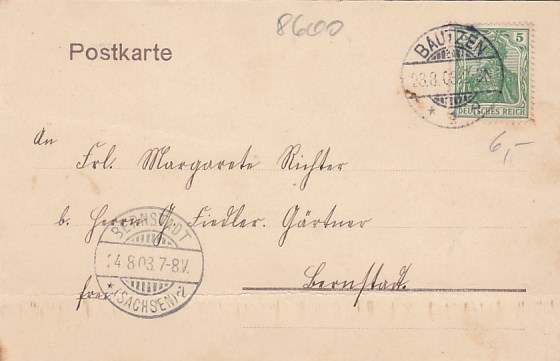 8600
Postkarte
BAUTZEN
5
DEUTSCHES REICH
6,-
An
Frl. Margarete Richter
b. Herrn G. Fiedler. Gärtner
BERNSTADT
24.8.03.7-8V.
* (SACHSEN) * 2
Bernstadt.
frei